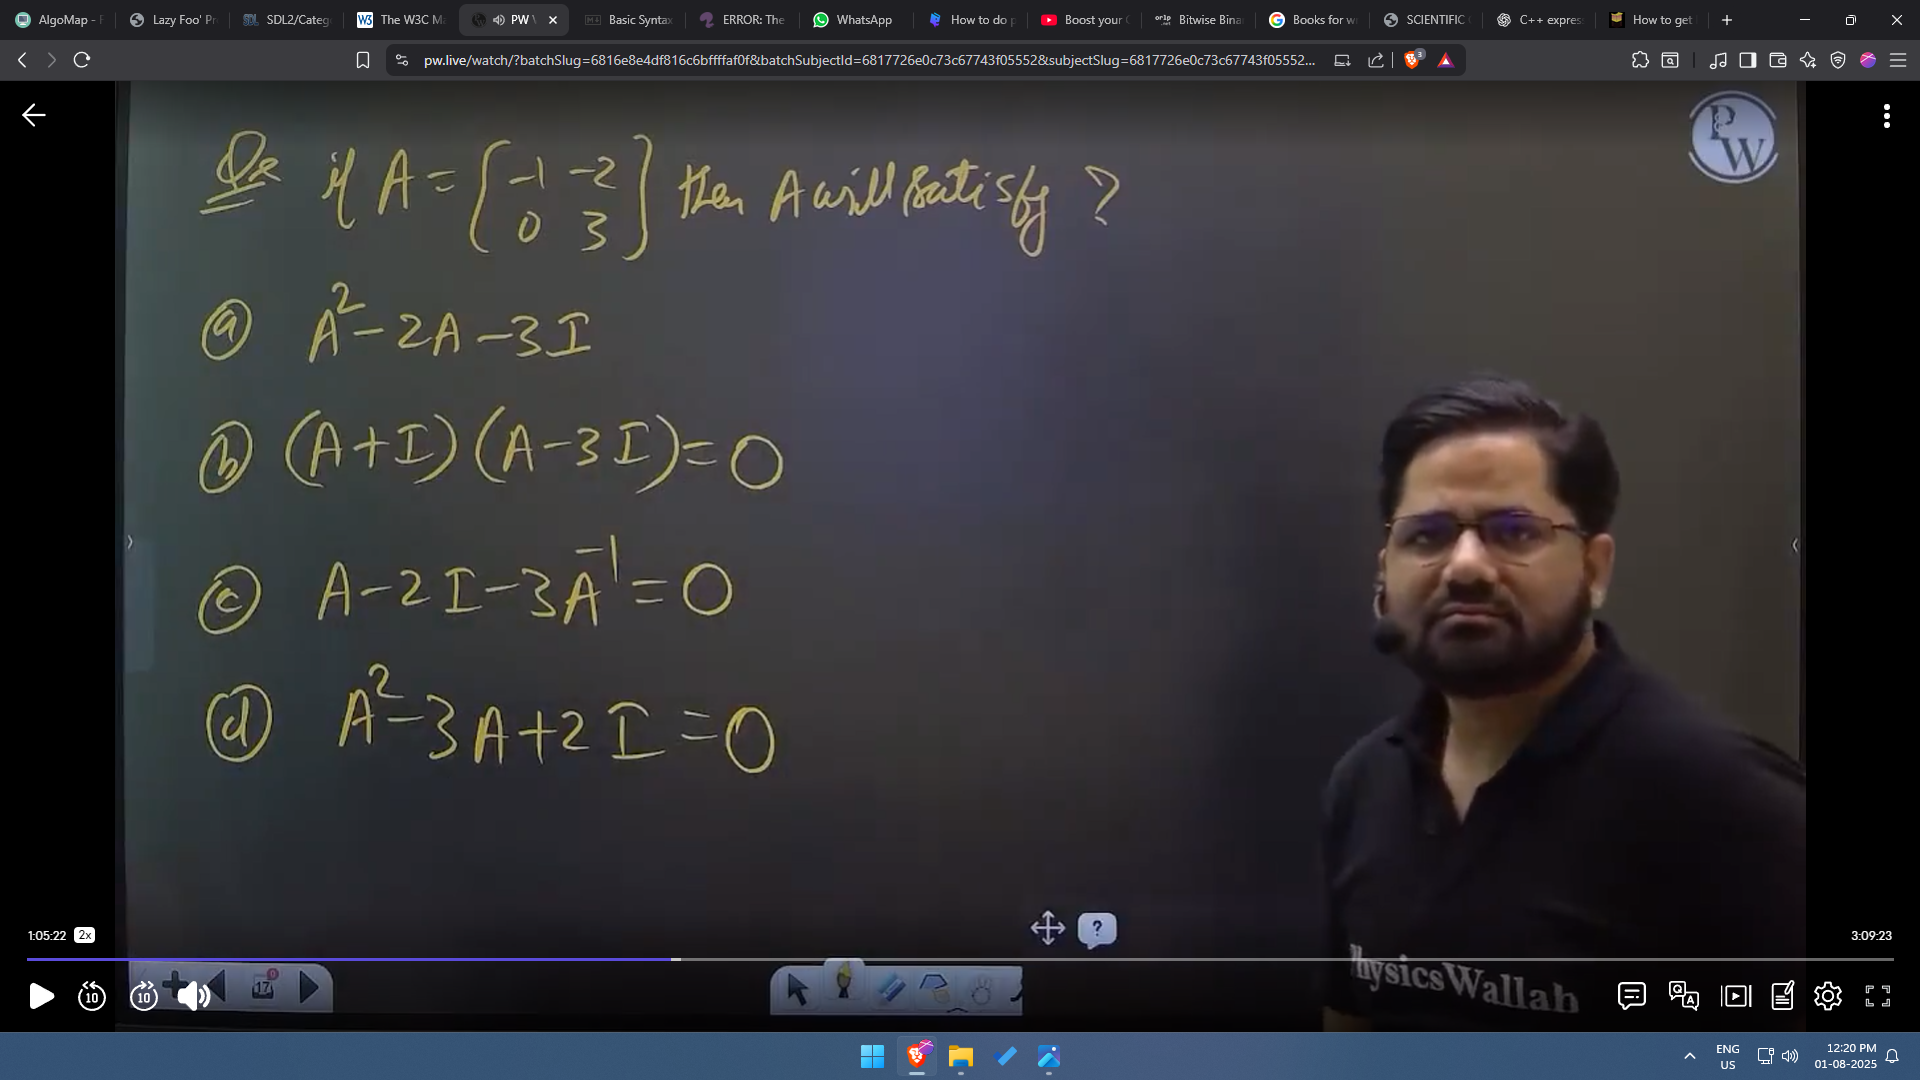 AlgoMap - F
Lazy Foo' Pr
SDL2/Categ
The W3C Ma
PW
Basic Syntax
ERROR: The
WhatsApp
How to do p
Boost your C
Bitwise Bina
Books for w
SCIENTIFIC
C++ expres
How to get
pw.live/watch/?batchSlug=6816e8e4df816c6bffffaf0f&batchSubjectId=6817726e0c73c67743f05552&subjectSlug=6817726e0c73c67743f05552...
3
PW
Qx if A = [-1 -2
0 3] then A will satisfy ?
(a) A² - 2A - 3I
(b) (A + I) (A - 3I) = 0
(c) A - 2I - 3A⁻¹ = 0
(d) A² - 3A + 2I = 0
1:05:22 2x
3:09:23
hysicsWallah
10
10
17
0
ENG
US
12:20 PM
01-08-2025